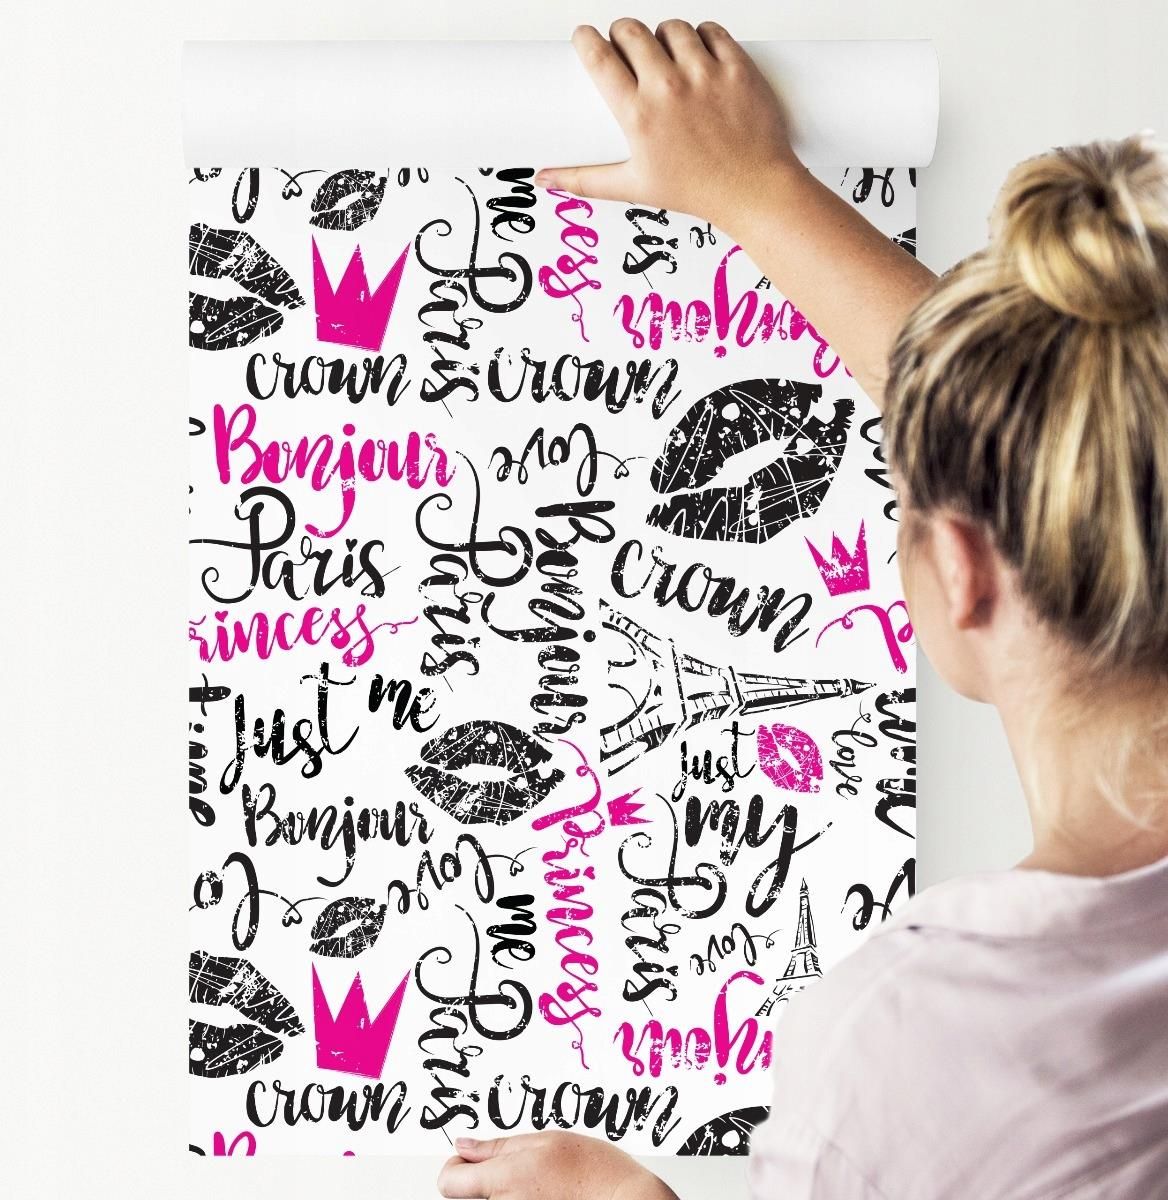 me
Paris
love
crown
crown
Bonjour
Bonjour
love
Paris
Paris
Bonjour
crown
Princess
Just me
just
love
Bonjour
my
love
Princess
me
Paris
love
Paris
Bonjour
crown
crown